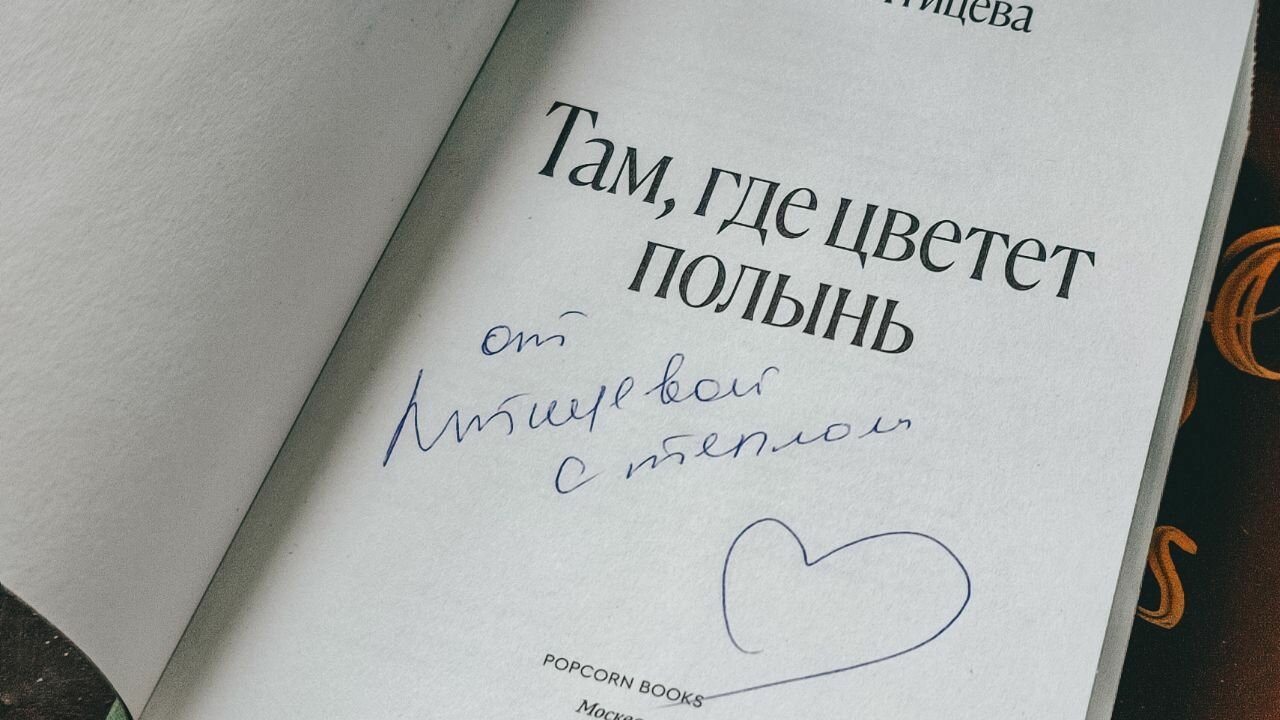 тицева
Там, где цветет
полынь
от
Птицевой
с теплом
POPCORN BOOKS
Москва